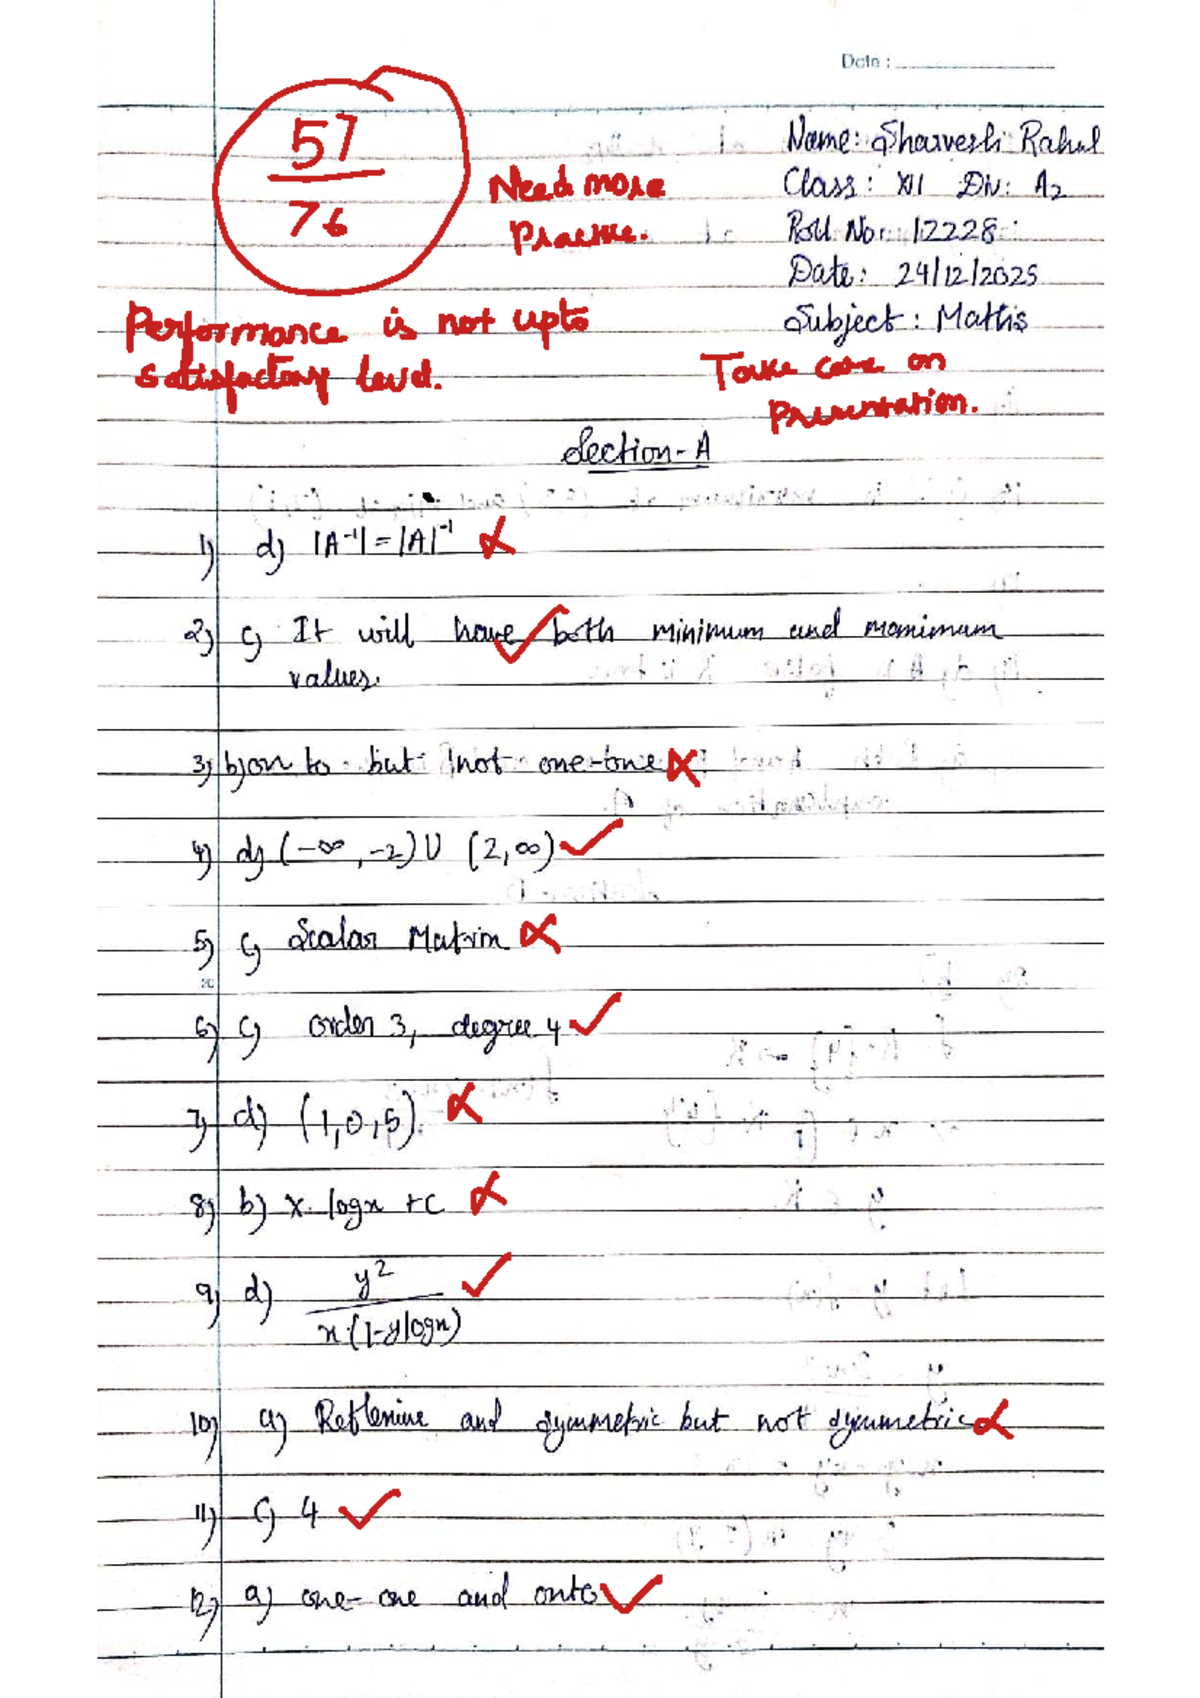 Date :
57
76
Need more
Practice.
Name: Sharvesh Rahul
Class: XII Div: A2
Roll No: 12228
Date: 24/12/2025
Subject: Maths
Performance is not upto
satisfactory level.
Take care on
Presentation.
Section-A
1) d) |A⁻¹| = |A|⁻¹
2) c) It will have both minimum and maximum
values.
3) b) on to but not one-one
4) d) (-∞, -2) U (2, ∞)
5) c) Scalar Matrix
6) c) order 3, degree 4
7) d) (1,0,5)
8) b) x. logx + C
9) d) y²
x.(1-ylogx)
10) a) Reflexive and symmetric but not symmetric
11) c) 4
12) a) one-one and onto